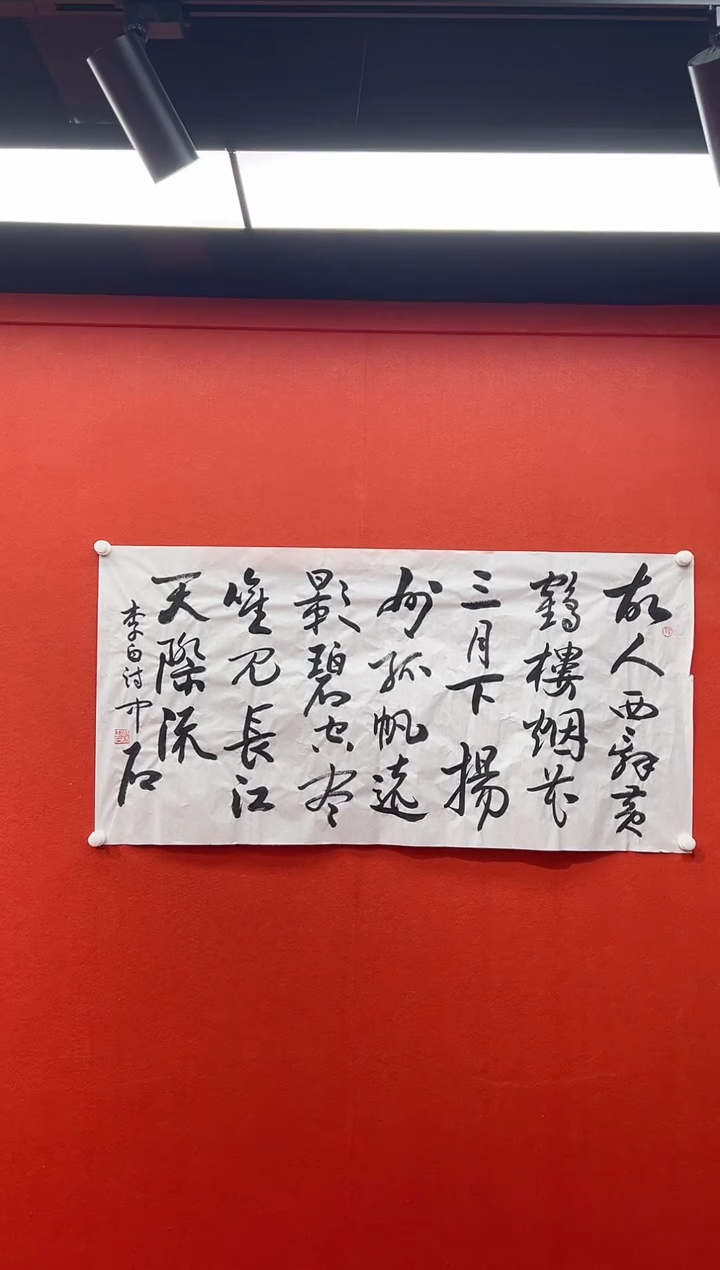 故人西辞黄
鹤樓烟花
三月下揚
州孤帆远
影碧空尽
唯见長江
天際流
李白诗中石